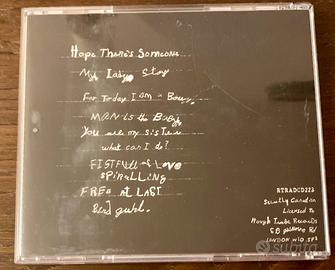 Hope There's Someone
My Lady Story
For Today I am a Boy
MAN is the Baby
You are my sister
what can I do?
FISTFULL of Love
SPiRALLING
FREE at LAST
Bird guhl.
RTRADCD223
Secretly Canadian
Licensed to
Rough Trade Records
London W10 5PJ
subito